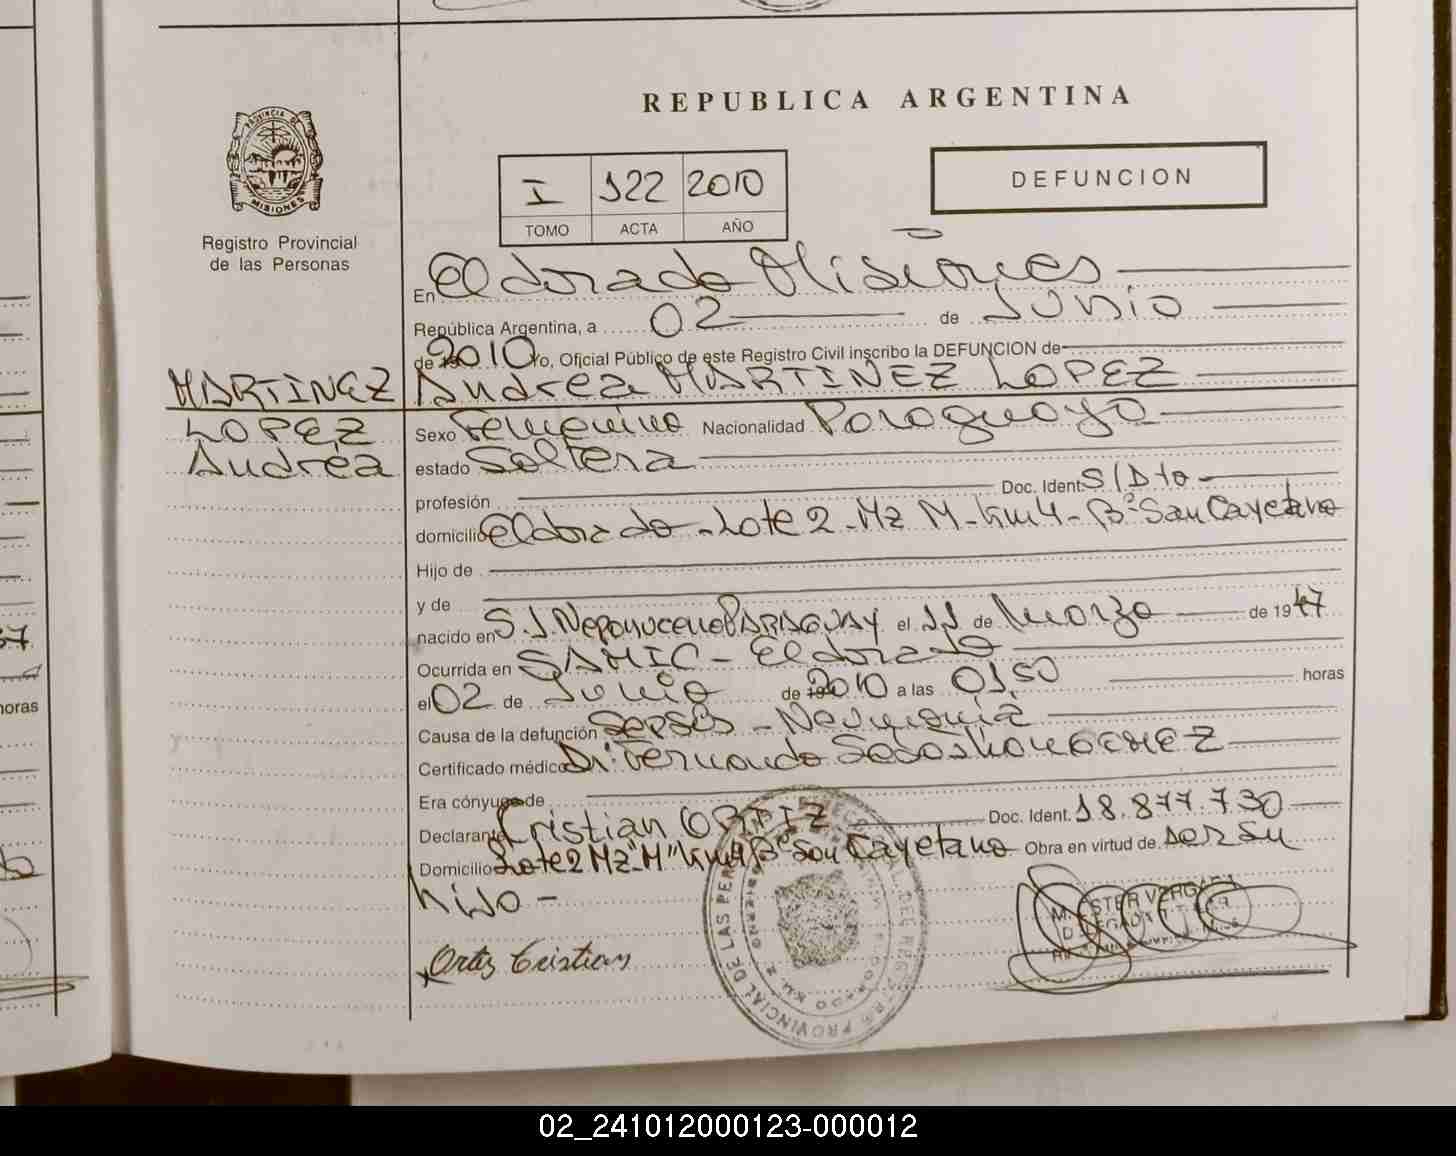 REPUBLICA ARGENTINA
PROVINCIA DE
MISIONES
Registro Provincial
de las Personas
I 122 2010
TOMO ACTA AÑO
DEFUNCION
En Eldorado Misiones
República Argentina, a 02 de Junio
de 2010 Yo, Oficial Público de este Registro Civil inscribo la DEFUNCION de
MARTINEZ
LOPEZ
Andrea
Andrea MARTINEZ LOPEZ
Sexo Femenino Nacionalidad Paraguaya
estado Soltera
profesión Doc. Ident. S/Dto
domicilio Eldorado - Lote 2 - Mz M - km 4 - Bº San Cayetano
Hijo de
y de
nacido en S. J. Nepomuceno PARAGUAY el 11 de Marzo de 1947
Ocurrida en SAMIC - Eldorado
el 02 de Junio de 2010 a las 01,50 horas
Causa de la defunción Sepsis - Neumonia
Certificado médico Dr. Fernando GOMEZ
Era cónyuge de
Declarante Cristian ORTIZ Doc. Ident. 18.877.730
Domicilio Lote 2 Mz "M" km 4 Bº San Cayetano Obra en virtud de ser su
hijo -
Ortiz Cristian
02_241012000123-000012